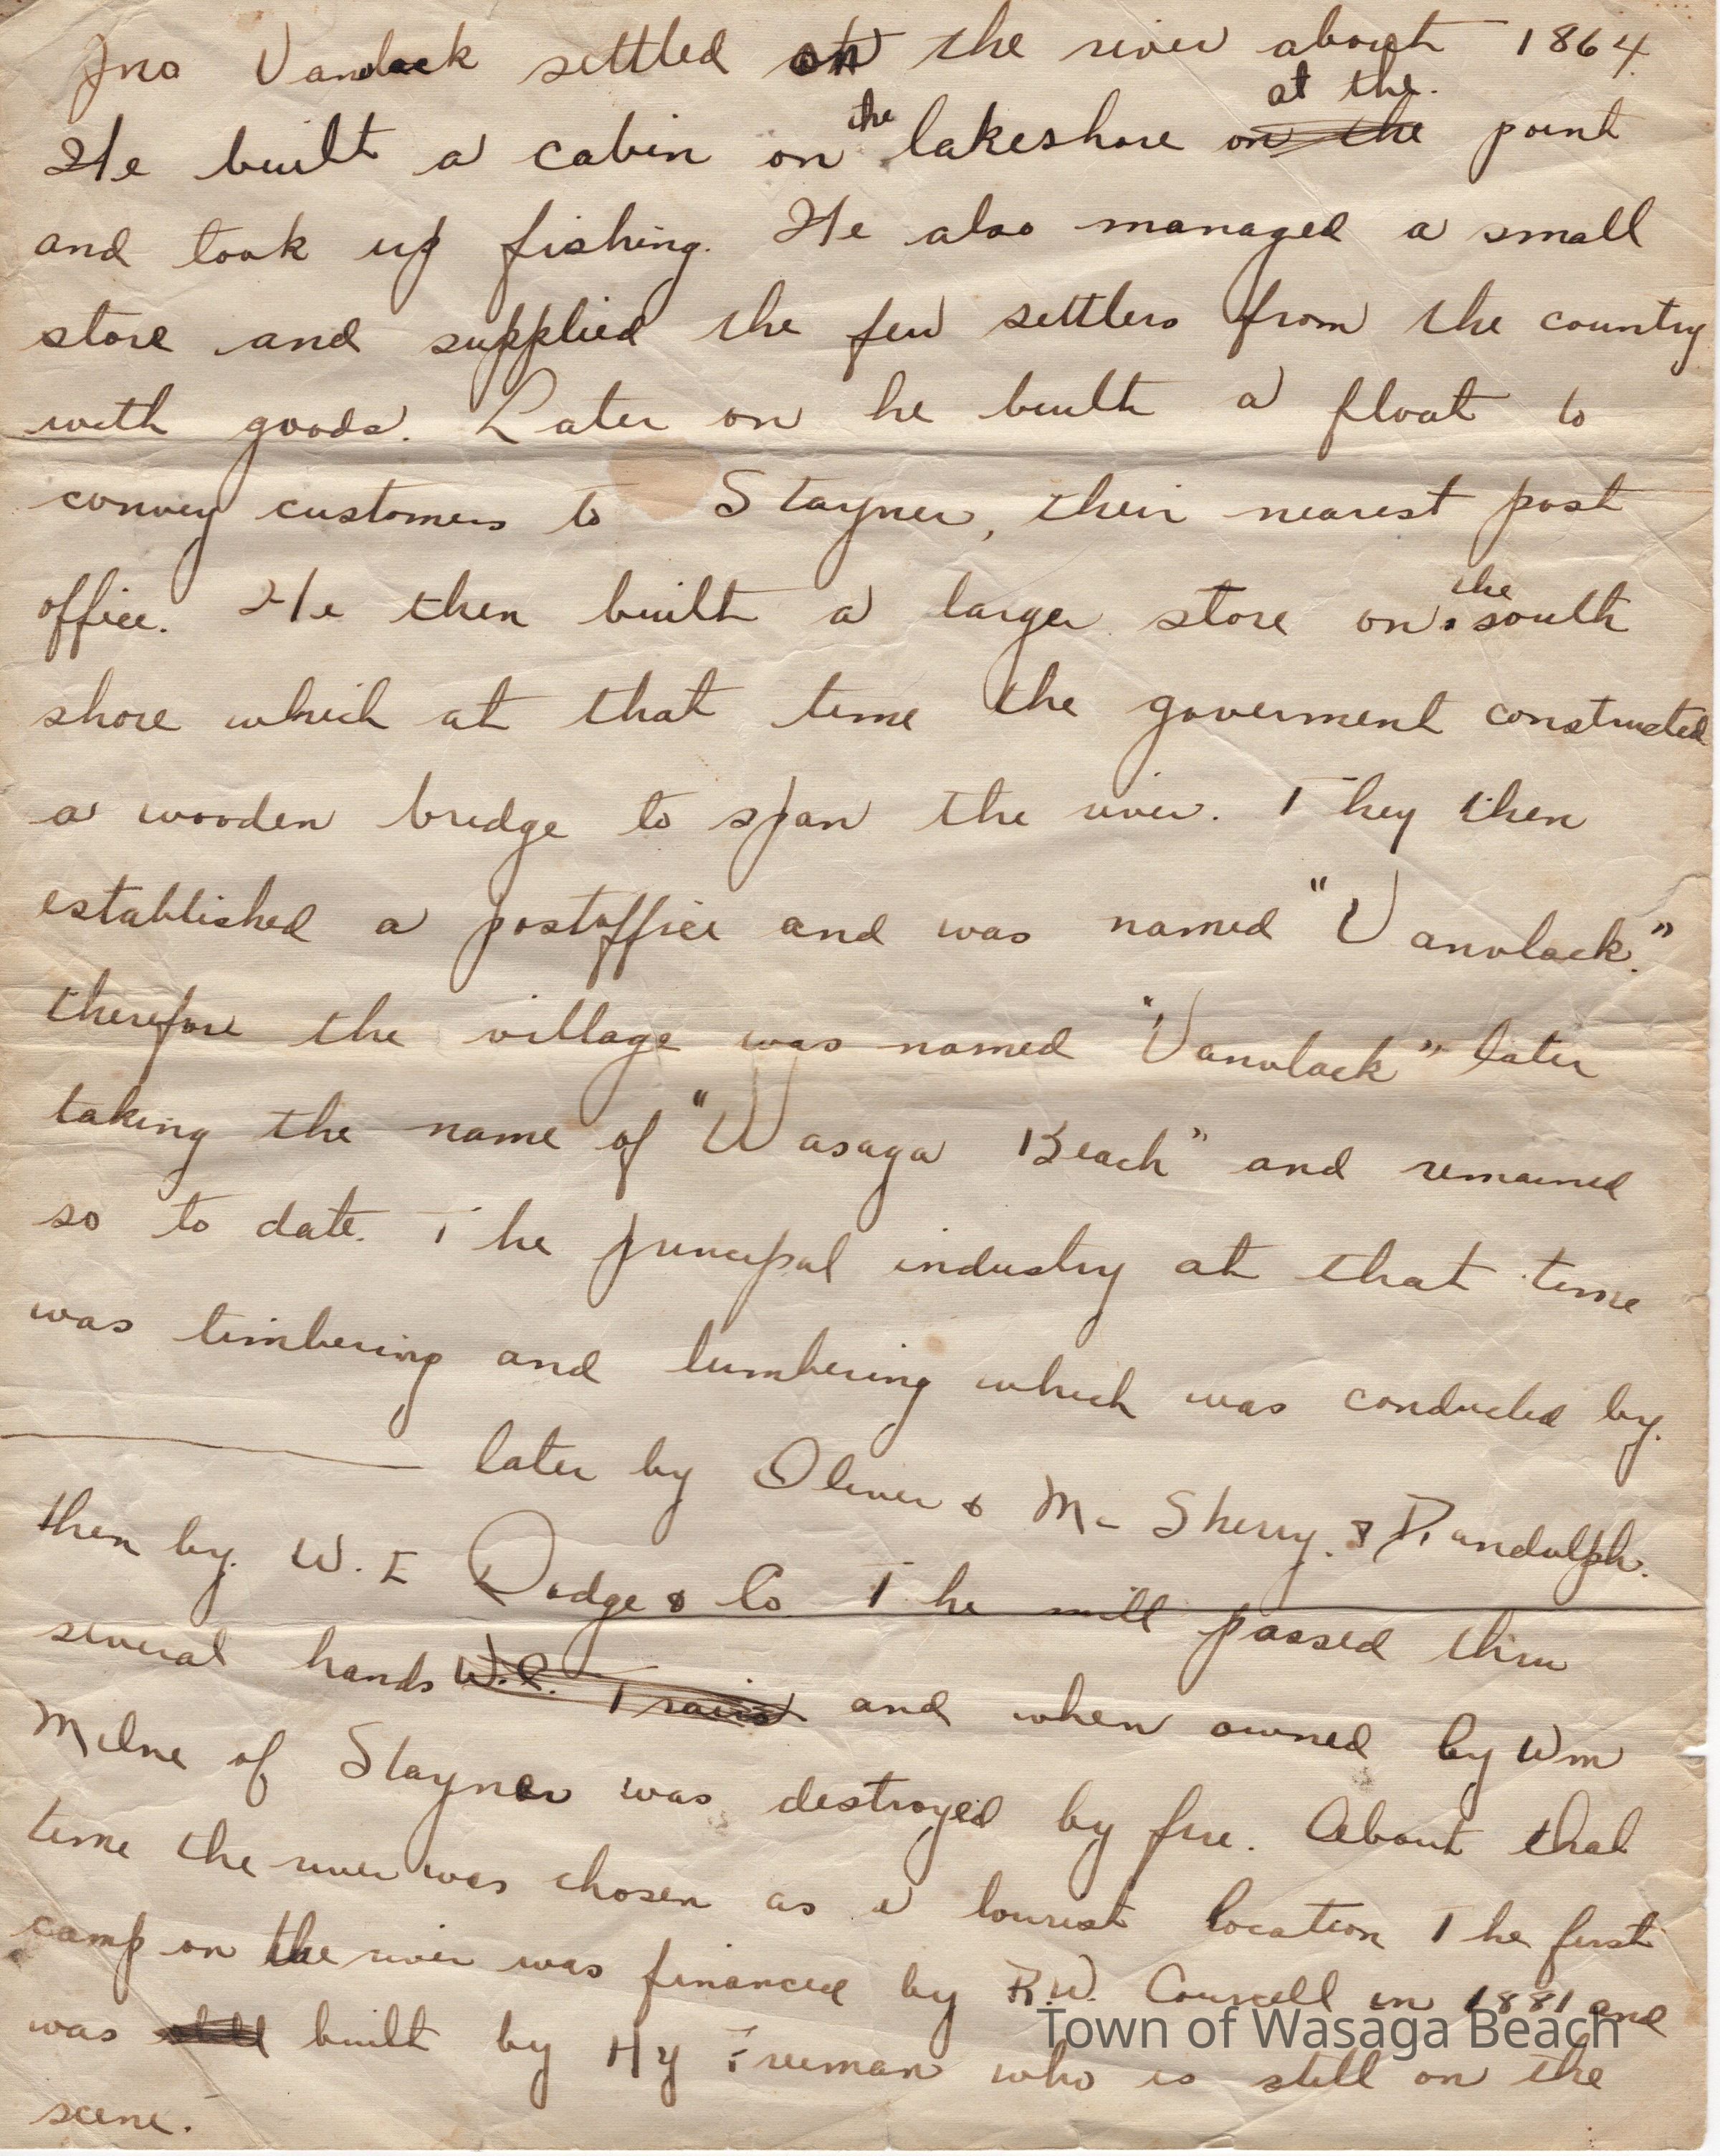 Jno Vanvlack settled on the river about 1864.
at the.
He built a cabin on the lakeshore on the point
and took up fishing. He also managed a small
store and supplied the few settlers from the country
with goods. Later on he built a float to
convey customers to Stayner, their nearest post
office. He then built a larger store on the south
shore which at that time the goverment constructed
a wooden bridge to span the river. They then
established a postoffice and was named "Vanvlack."
therefore the village was named "Vanvlack" later
taking the name of "Wasaga Beach" and remained
so to date. The principal industry at that time
was timbering and lumbering which was conducted by.
later by Oliver & Mc Sherry. & Randolph.
then by. W. E Dodge & Co The mill passed thru
several hands W.C. and when owned by Wm
Milne of Stayner was destroyed by fire. About that
time the river was chosen as a tourist location The first
camp on the river was financed by R.W. in 1881 and
was built by Hy Freeman who is still on the
scene.
Town of Wasaga Beach